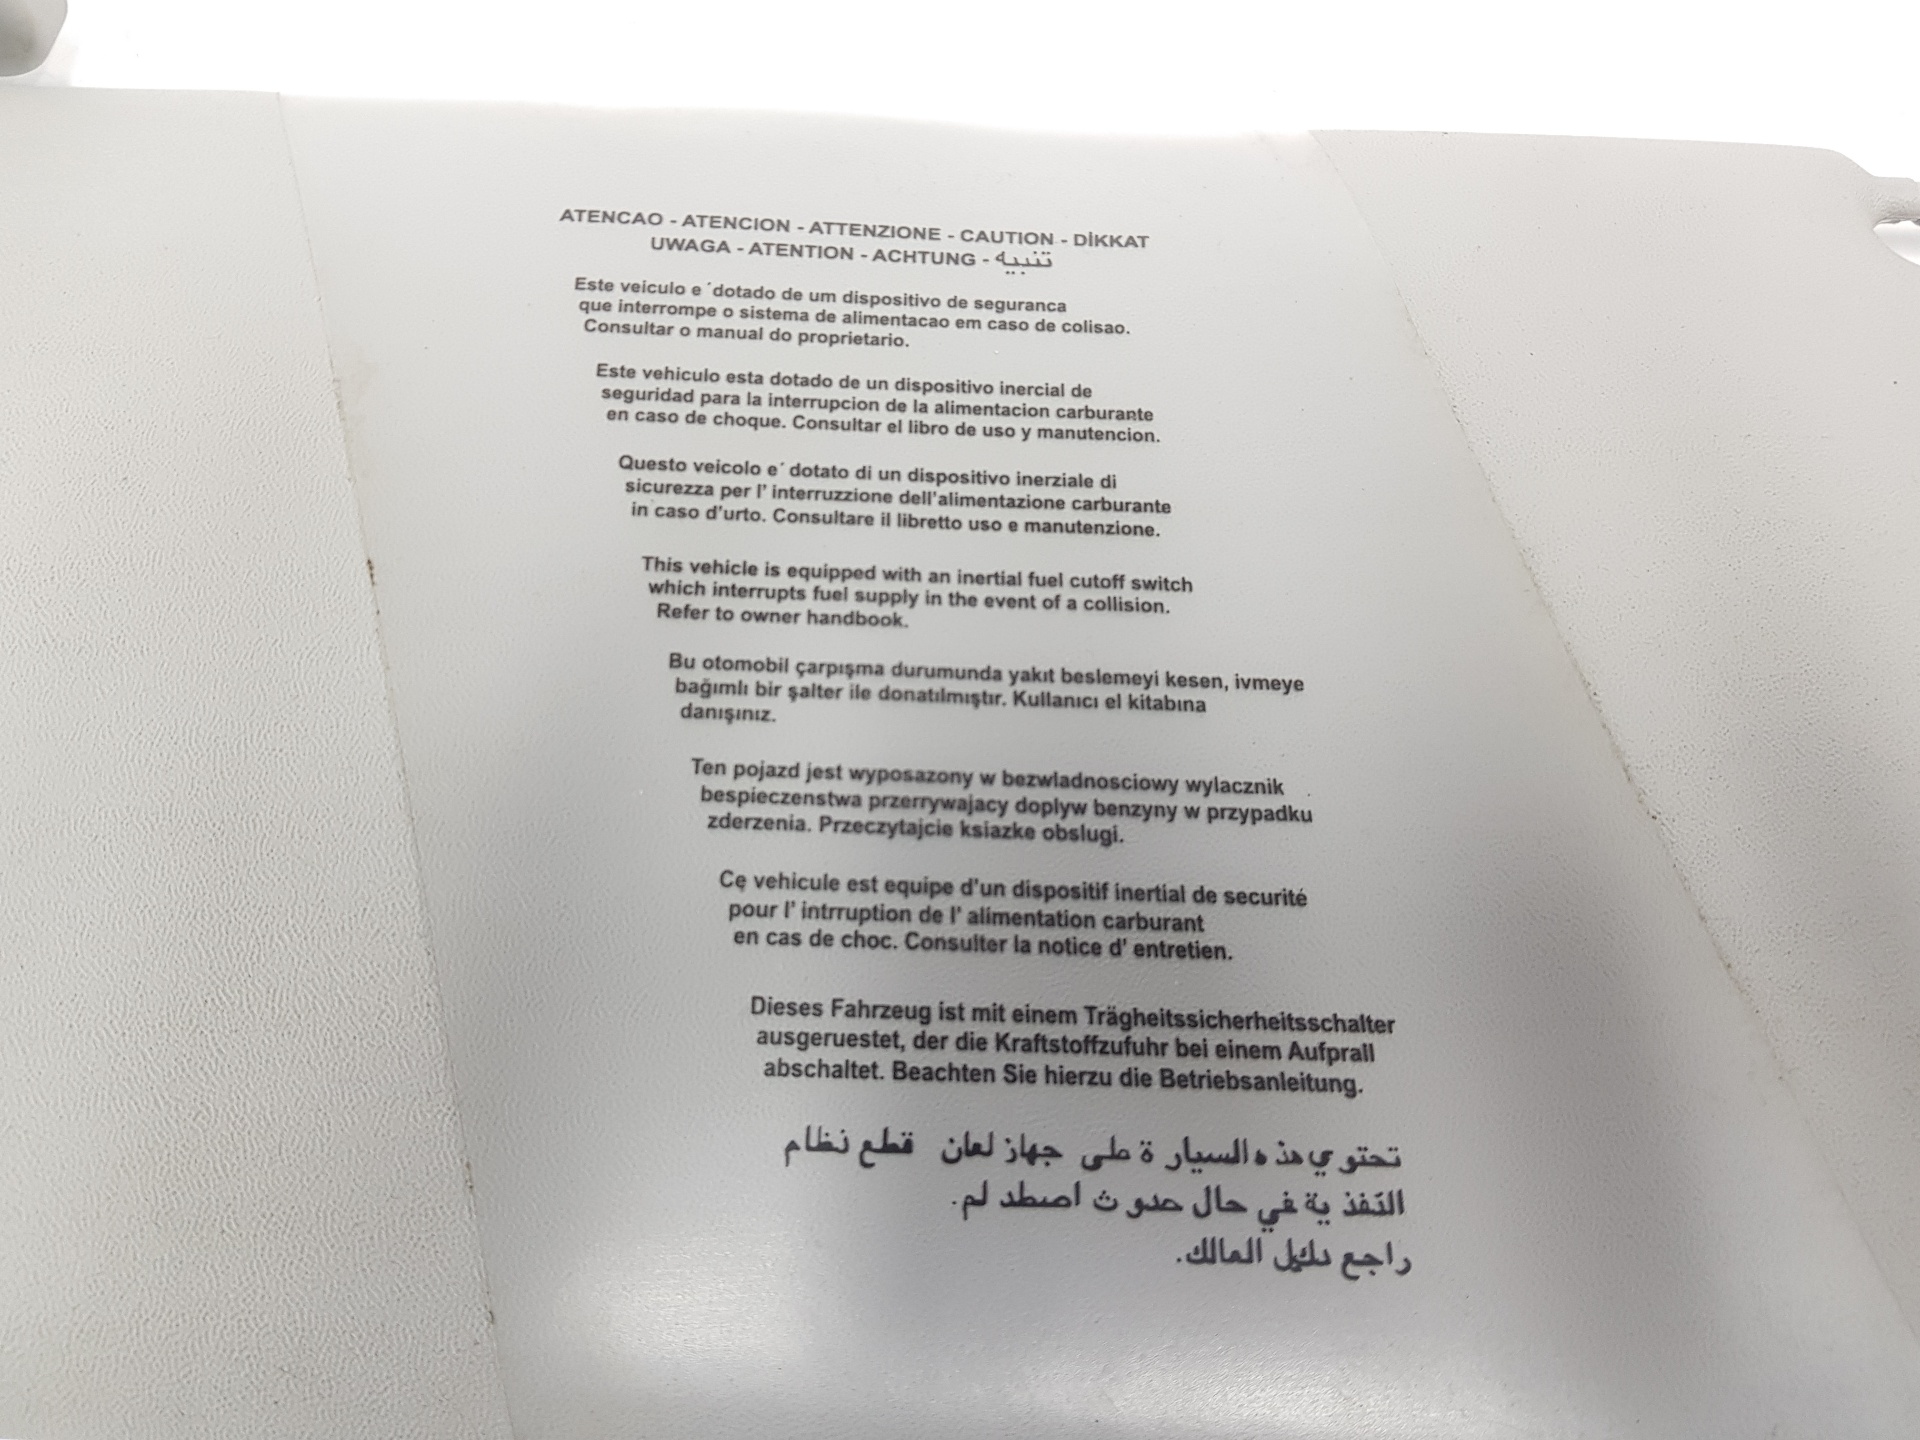 ATENCAO - ATENCION - ATTENZIONE - CAUTION - DİKKAT
UWAGA - ATENTION - ACHTUNG - تنبيه
Este veiculo e´dotado de um dispositivo de seguranca
que interrompe o sistema de alimentacao em caso de colisao.
Consultar o manual do proprietario.
Este vehiculo esta dotado de un dispositivo inercial de
seguridad para la interrupcion de la alimentacion carburante
en caso de choque. Consultar el libro de uso y manutencion.
Questo veicolo e´ dotato di un dispositivo inerziale di
sicurezza per l' interruzzione dell'alimentazione carburante
in caso d'urto. Consultare il libretto uso e manutenzione.
This vehicle is equipped with an inertial fuel cutoff switch
which interrupts fuel supply in the event of a collision.
Refer to owner handbook.
Bu otomobil çarpışma durumunda yakıt beslemeyi kesen, ivmeye
bağımlı bir şalter ile donatılmıştır. Kullanıcı el kitabına
danışınız.
Ten pojazd jest wyposazony w bezwladnosciowy wylacznik
bespieczenstwa przerrywajacy doplyw benzyny w przypadku
zderzenia. Przeczytajcie ksiazke obslugi.
Cę vehicule est equipe d'un dispositif inertial de securité
pour l' intrruption de l' alimentation carburant
en cas de choc. Consulter la notice d' entretien.
Dieses Fahrzeug ist mit einem Trägheitssicherheitsschalter
ausgeruestet, der die Kraftstoffzufuhr bei einem Aufprall
abschaltet. Beachten Sie hierzu die Betriebsanleitung.
تحتو ي هذ ه السيار ة على جهاز لعان قطع نظام
التغذ ية في حال حدو ث اصطد لم.
راجع دليل المالك.